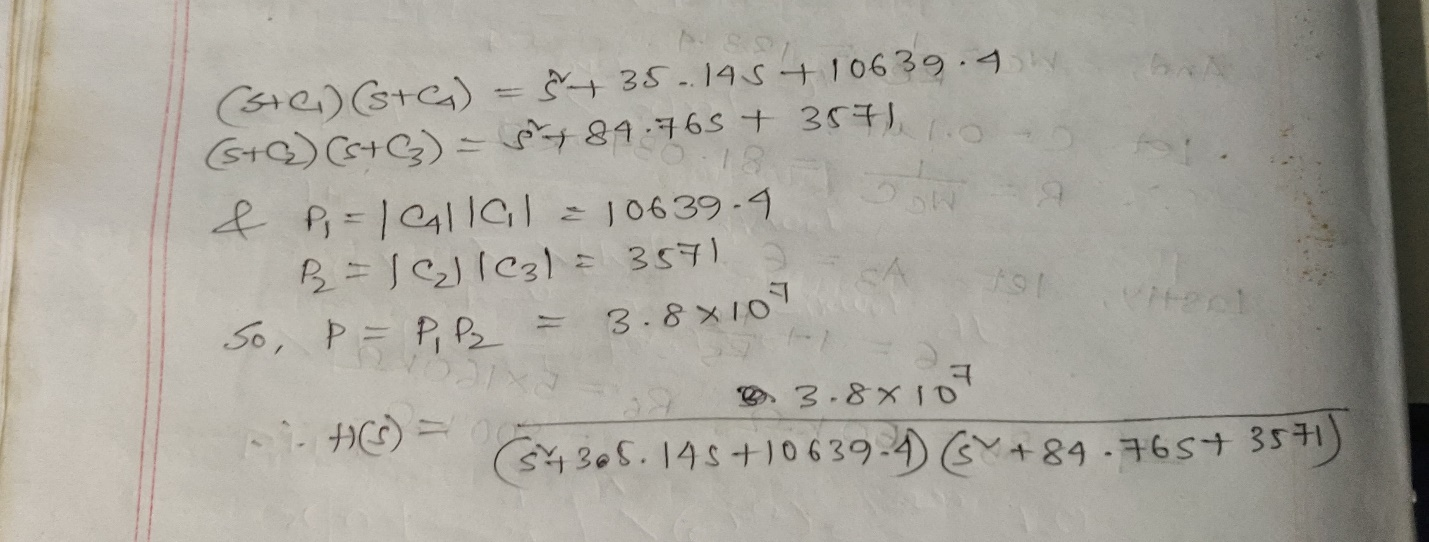 (s+C₁)(s+C₄) = s² + 35.14s + 10639.4
(s+C₂)(s+C₃) = s² + 84.76s + 3571
& P₁ = |C₄||C₁| = 10639.4
P₂ = |C₂||C₃| = 3571
So, P = P₁P₂ = 3.8×10⁷
3.8×10⁷
∴ H(s) =
(s²+305.14s+10639.4)(s²+84.76s+3571)